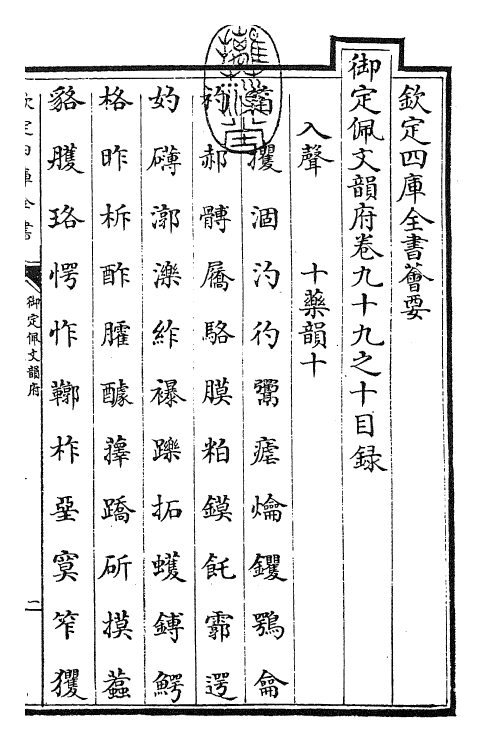 欽定四庫全書薈要
御定佩文韻府卷九十九之十目錄
入聲 十藥韻十
攫涸汋彴鸑瘧爚钁鶚龠
礿郝髆屩駱膜粕鏌飥霩遌
妁礴漷濼筰襮躒拓蠖鎛鰐
格昨柝酢臛醵蘀蹻斫摸蠚
貉臒珞愕怍鞹柞堊寞笮玃
欽定四庫全書
御定佩文韻府
一